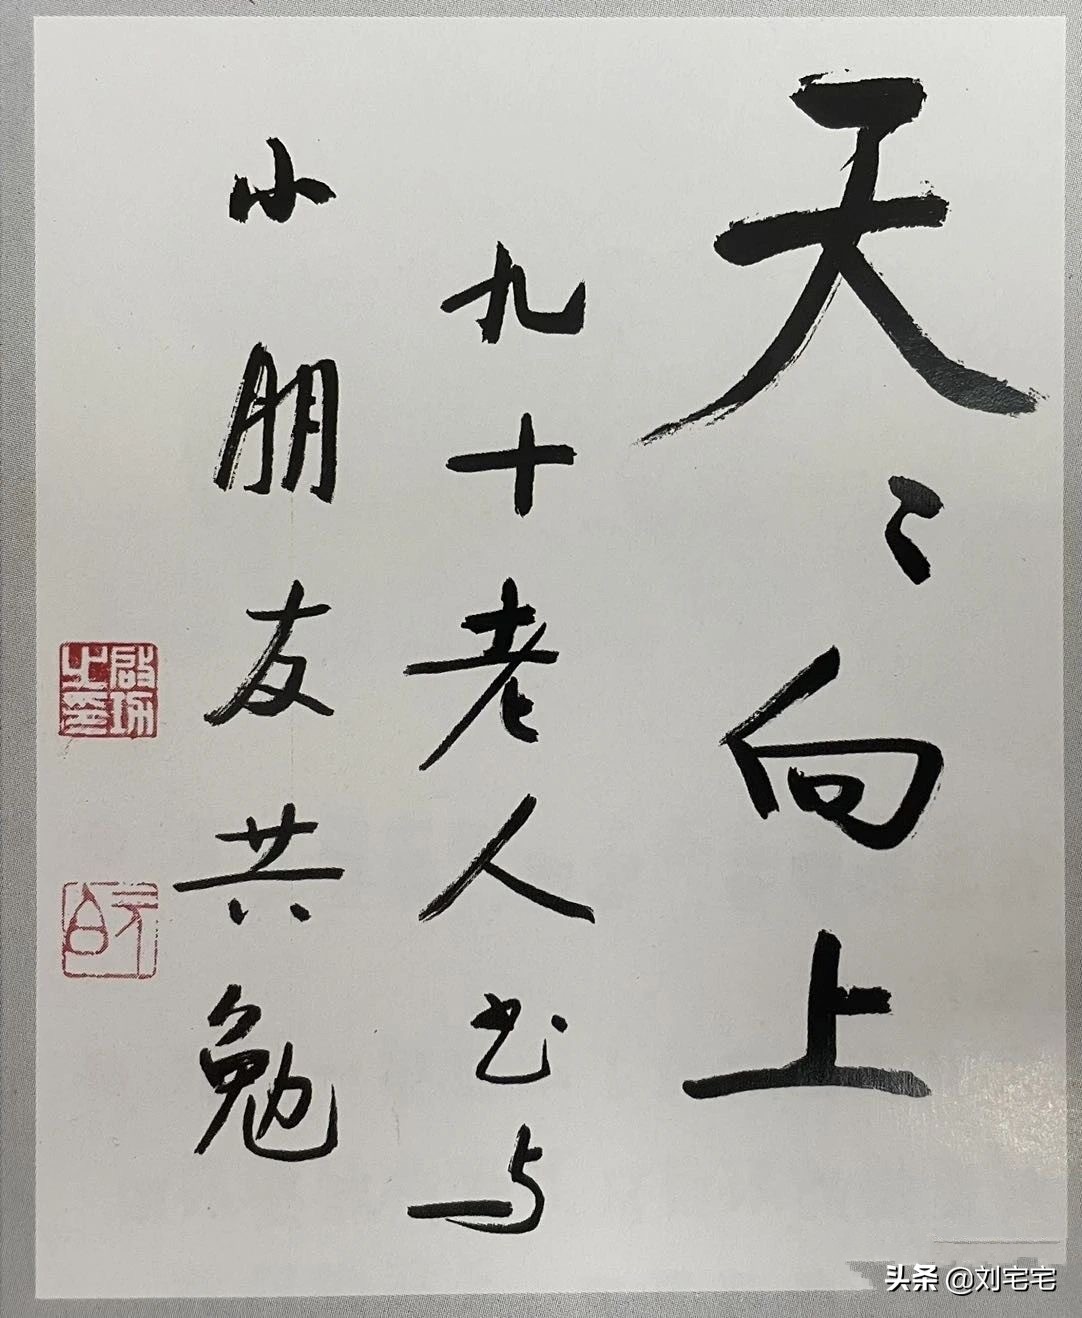 天〻向上
九十老人书与
小朋友共勉
启功之玺
元白
头条 @刘宅宅